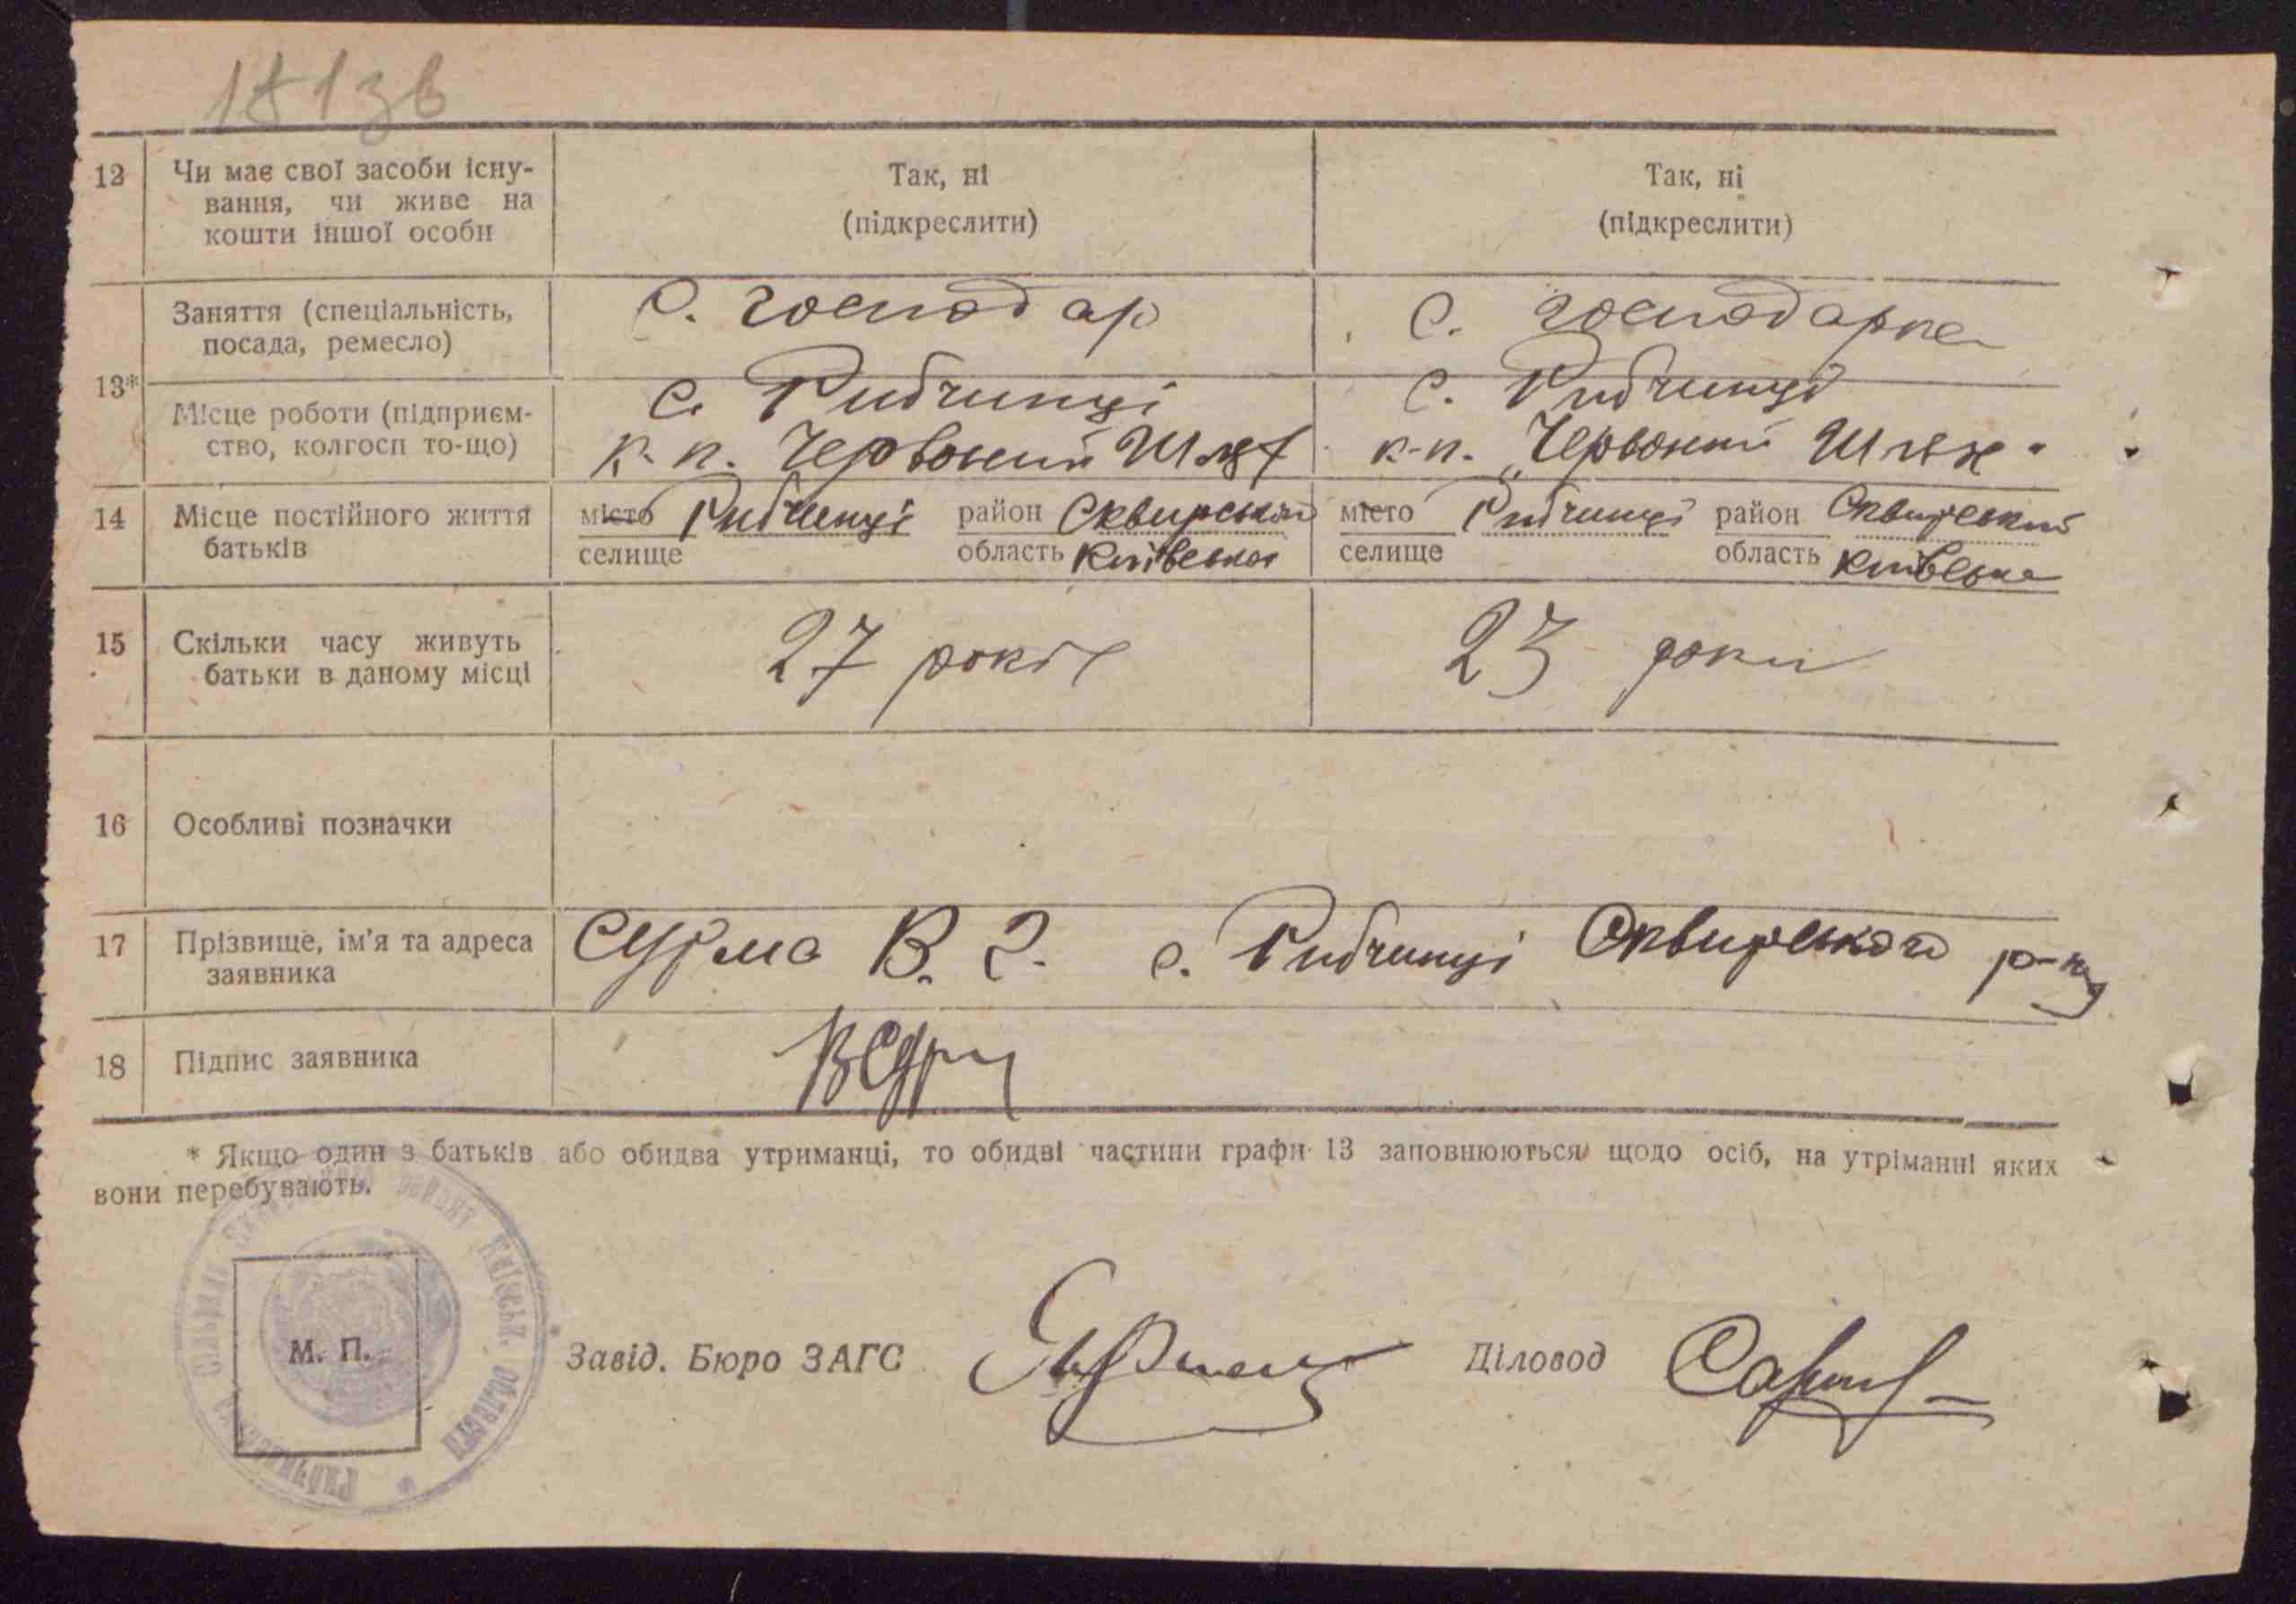 181зв
12 Чи має свої засоби існу- Так, ні Так, ні
вання, чи живе на
кошти іншої особи (підкреслити) (підкреслити)
Заняття (спеціальність, С. господар С. господарка
посада, ремесло)
13*
Місце роботи (підприєм- с. Рибчинці с. Рибчинці
ство, колгосп то-що) к-п. Червоний Шлях к-п. "Червоний Шлях"
14 Місце постійного життя місто Рибчинці район Сквирський місто Рибчинці район Сквирський
батьків селище область Київська селище область Київська
15 Скільки часу живуть 27 років 23 роки
батьки в даному місці
16 Особливі позначки
17 Прізвище, ім'я та адреса Сурма В. г. с. Рибчинці Сквирського р-ну
заявника
18 Підпис заявника
* Якщо один з батьків або обидва утриманці, то обидві частини графи 13 заповнюються щодо осіб, на утріманні яких
вони перебувають.
М. П. Завід. Бюро ЗАГС Діловод
району Київськ. області